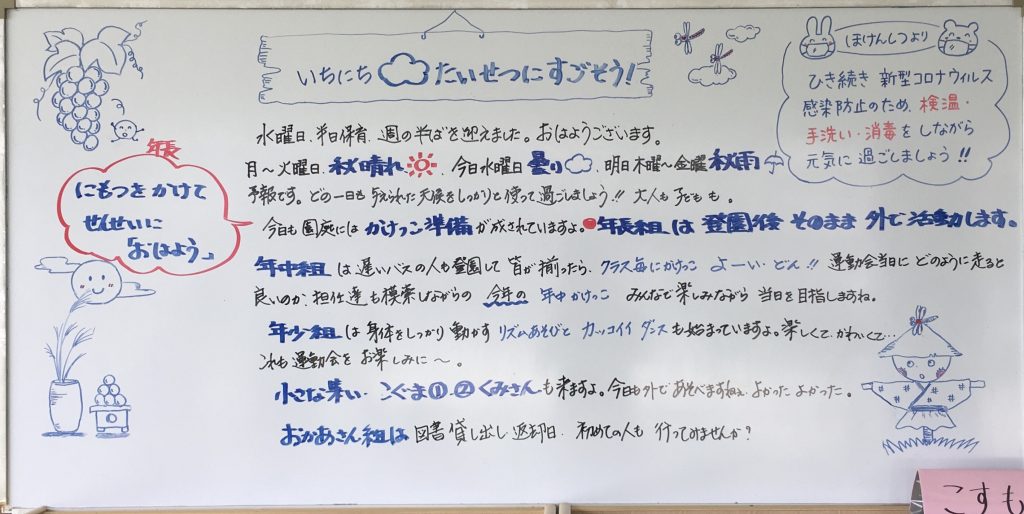 いちにち たいせつにすごそう!
ほけんしつより
ひき続き 新型コロナウィルス
感染防止のため、検温・
手洗い・消毒をしながら
元気に過ごしましょう!!
年長
にもつをかけて
せんせいに
「おはよう」
水曜日、半日保育、週の半ばを迎えました。おはようございます。
月〜火曜日、秋晴れ、今日水曜日曇り、明日木曜〜金曜秋雨
予報です。どの一日も与えられた天候をしっかりと使って過ごしましょう!! 大人も子どもも。
今日も園庭にはかけっこ準備が成されていますよ。年長組は登園後そのまま外で活動します。
年中組は遅いバスの人も登園して皆が揃ったら、クラス毎にかけっこ よーい・どん!! 運動会当日にどのように走ると
良いのか、担任達も模索しながらの 今年の年中かけっこ みんなで楽しみながら 当日を目指しますね。
年少組は身体をしっかり動かすリズムあそびとカッコイイダンスも始まっていますよ。楽しくて、かわいくて…
これも運動会をお楽しみに〜。
小さな集い・こぐま①・②くみさんも来ますよ。今日も外であそべますねぇ、よかったよかった。
おかあさん組は図書貸し出し返却日、初めての人も行ってみませんか?
こすも